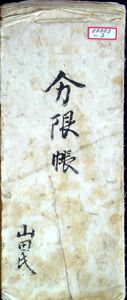 00003
-2
分限帳
山田氏